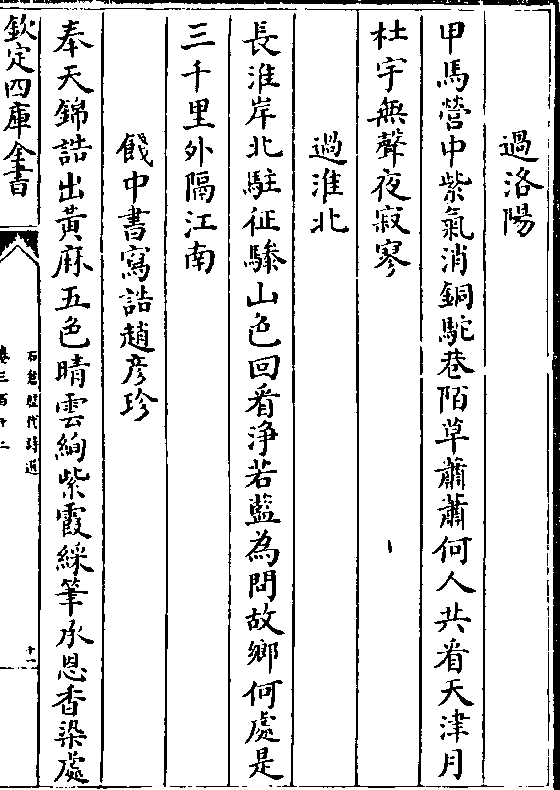 過洛陽
甲馬營中紫氣消銅駝巷陌草蕭蕭何人共看天津月
杜宇無聲夜寂寥
過淮北
長淮岸北駐征驂山色回看淨若藍為問故鄉何處是
三千里外隔江南
餞中書寫誥趙彥珍
奉天錦誥出黃麻五色晴雲絢紫霞綵筆承恩香染處
欽定四庫全書
石倉歷代詩選
卷三百十二
十一